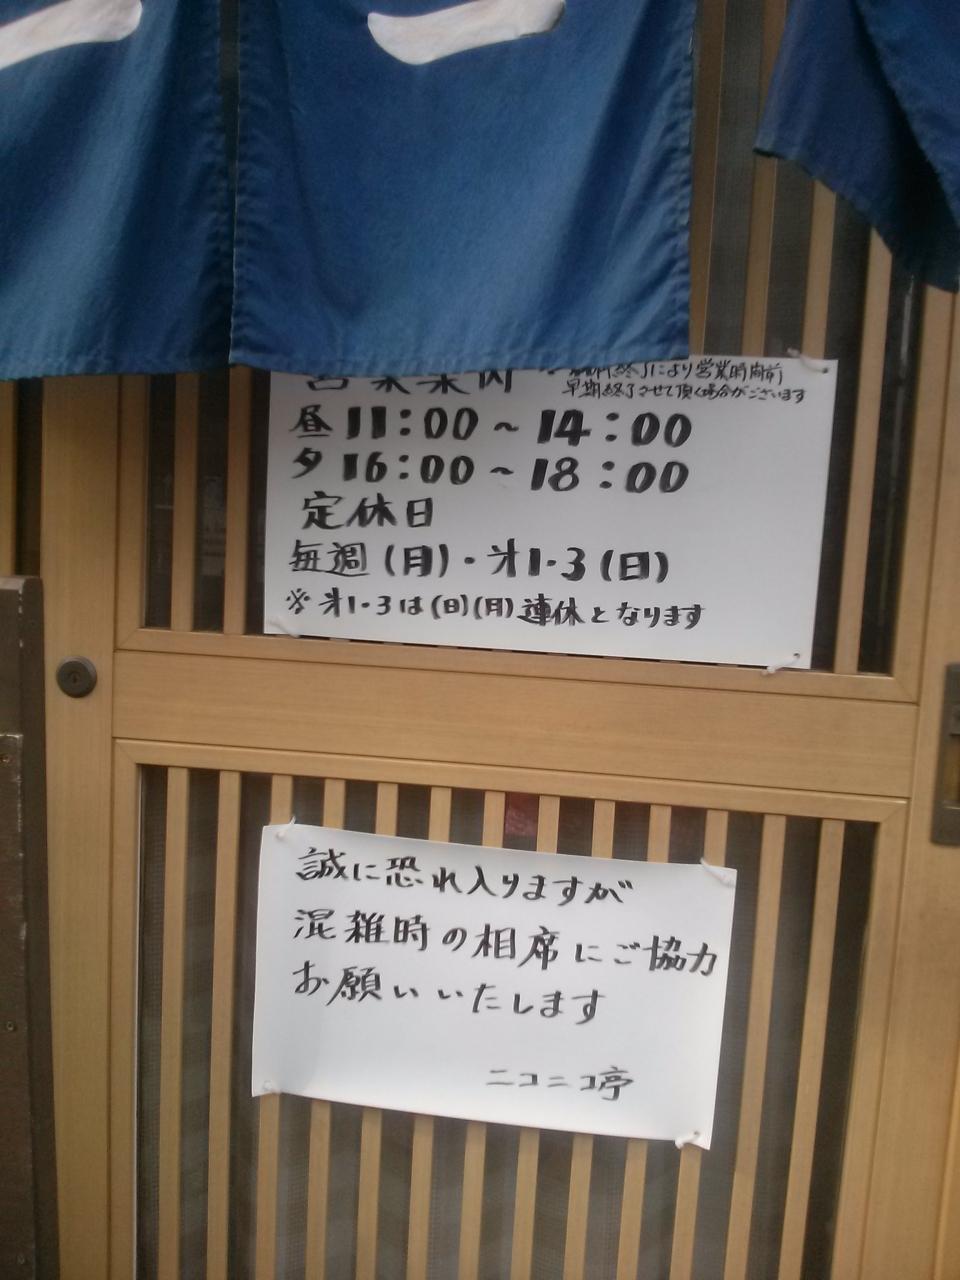 営業案内
終了により営業時間前
早期終了させて頂く場合がございます
昼 11:00 ~ 14:00
夕 16:00 ~ 18:00
定休日
毎週(月)・㐧1・3(日)
※㐧1・3は(日)(月)連休となります
誠に恐れ入りますが
混雑時の相席にご協力
お願いいたします
ニコニコ亭